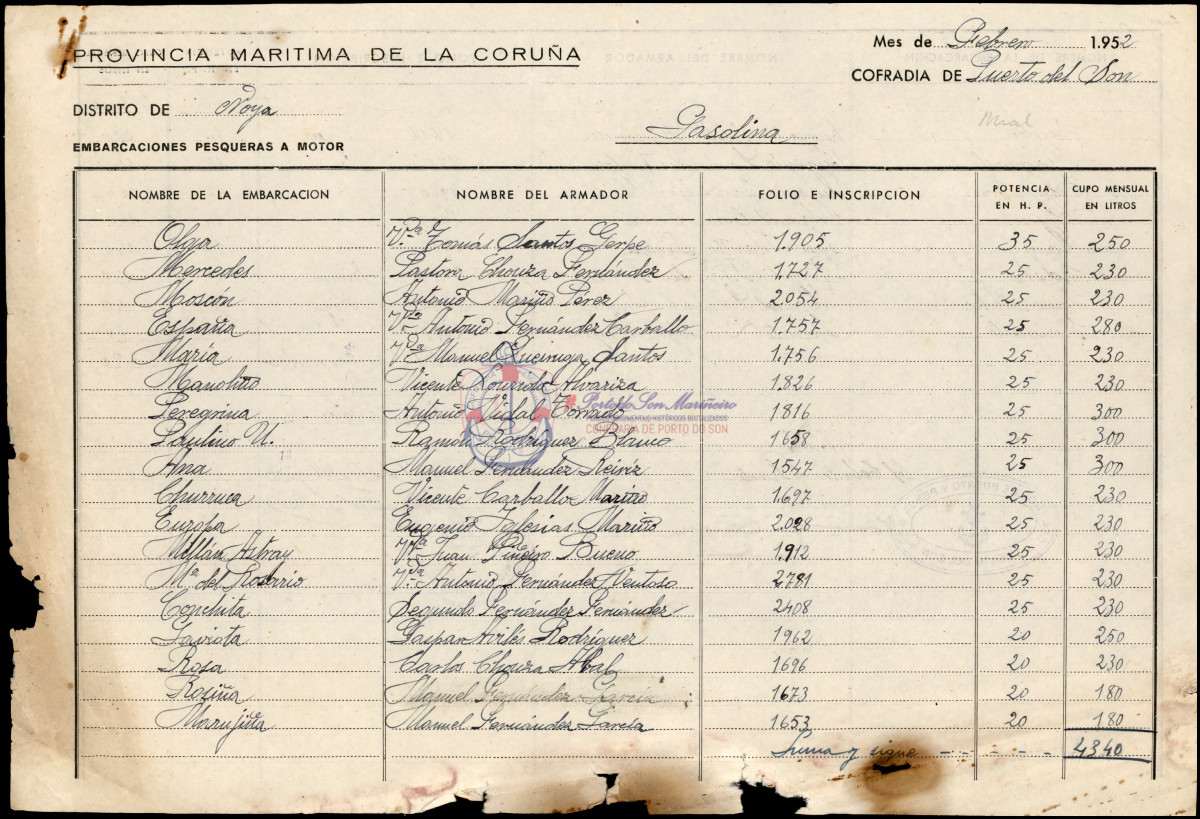 PROVINCIA MARITIMA DE LA CORUÑA
Mes de Febrero 1.952
COFRADIA DE Puerto del Son
DISTRITO DE Noya
Gasolina
EMBARCACIONES PESQUERAS A MOTOR
NOMBRE DE LA EMBARCACION NOMBRE DEL ARMADOR FOLIO E INSCRIPCION POTENCIA EN H. P. CUPO MENSUAL EN LITROS
Olga V.da Tomás Santos Gerpe 1.905 35 250
Mercedes Pastora Chouza Fernández 1.727 25 230
Moscón Antonio Mariño Pérez 2054 25 230
España V.da Antonio Fernández Carballo 1.757 25 280
Maria V.da Manuel Queiruga Santos 1.756 25 230
Manolito Vicente Lourido Alvariza 1.826 25 230
Peregrina Antonio Vidal Torrado 1816 25 300
Paulino U. Ramón Rodríguez Blanco 1658 25 300
Ana Manuel Fernández Reiriz 1547 25 300
Churruca Vicente Carballo Mariño 1.697 25 230
Europa Eugenio Iglesias Mariño 2.028 25 230
Millán Astray V.da Juan Piñeiro Bueno 1.912 25 230
Mª del Rosario V.da Antonio Fernández Ventoso 2781 25 230
Conchita Segundo Fernández Fernández 2408 25 230
Gaviota Gaspar Avilés Rodríguez 1962 20 250
Rosa Carlos Chouza Abal 1696 20 230
Rosiña Manuel Fernández García 1673 20 180
Marujiña Manuel Fernández García 1653 20 180
Suma y sigue - - - - - - 4340
Porto do Son Mariñeiro
CONFRARÍA DE PORTO DO SON